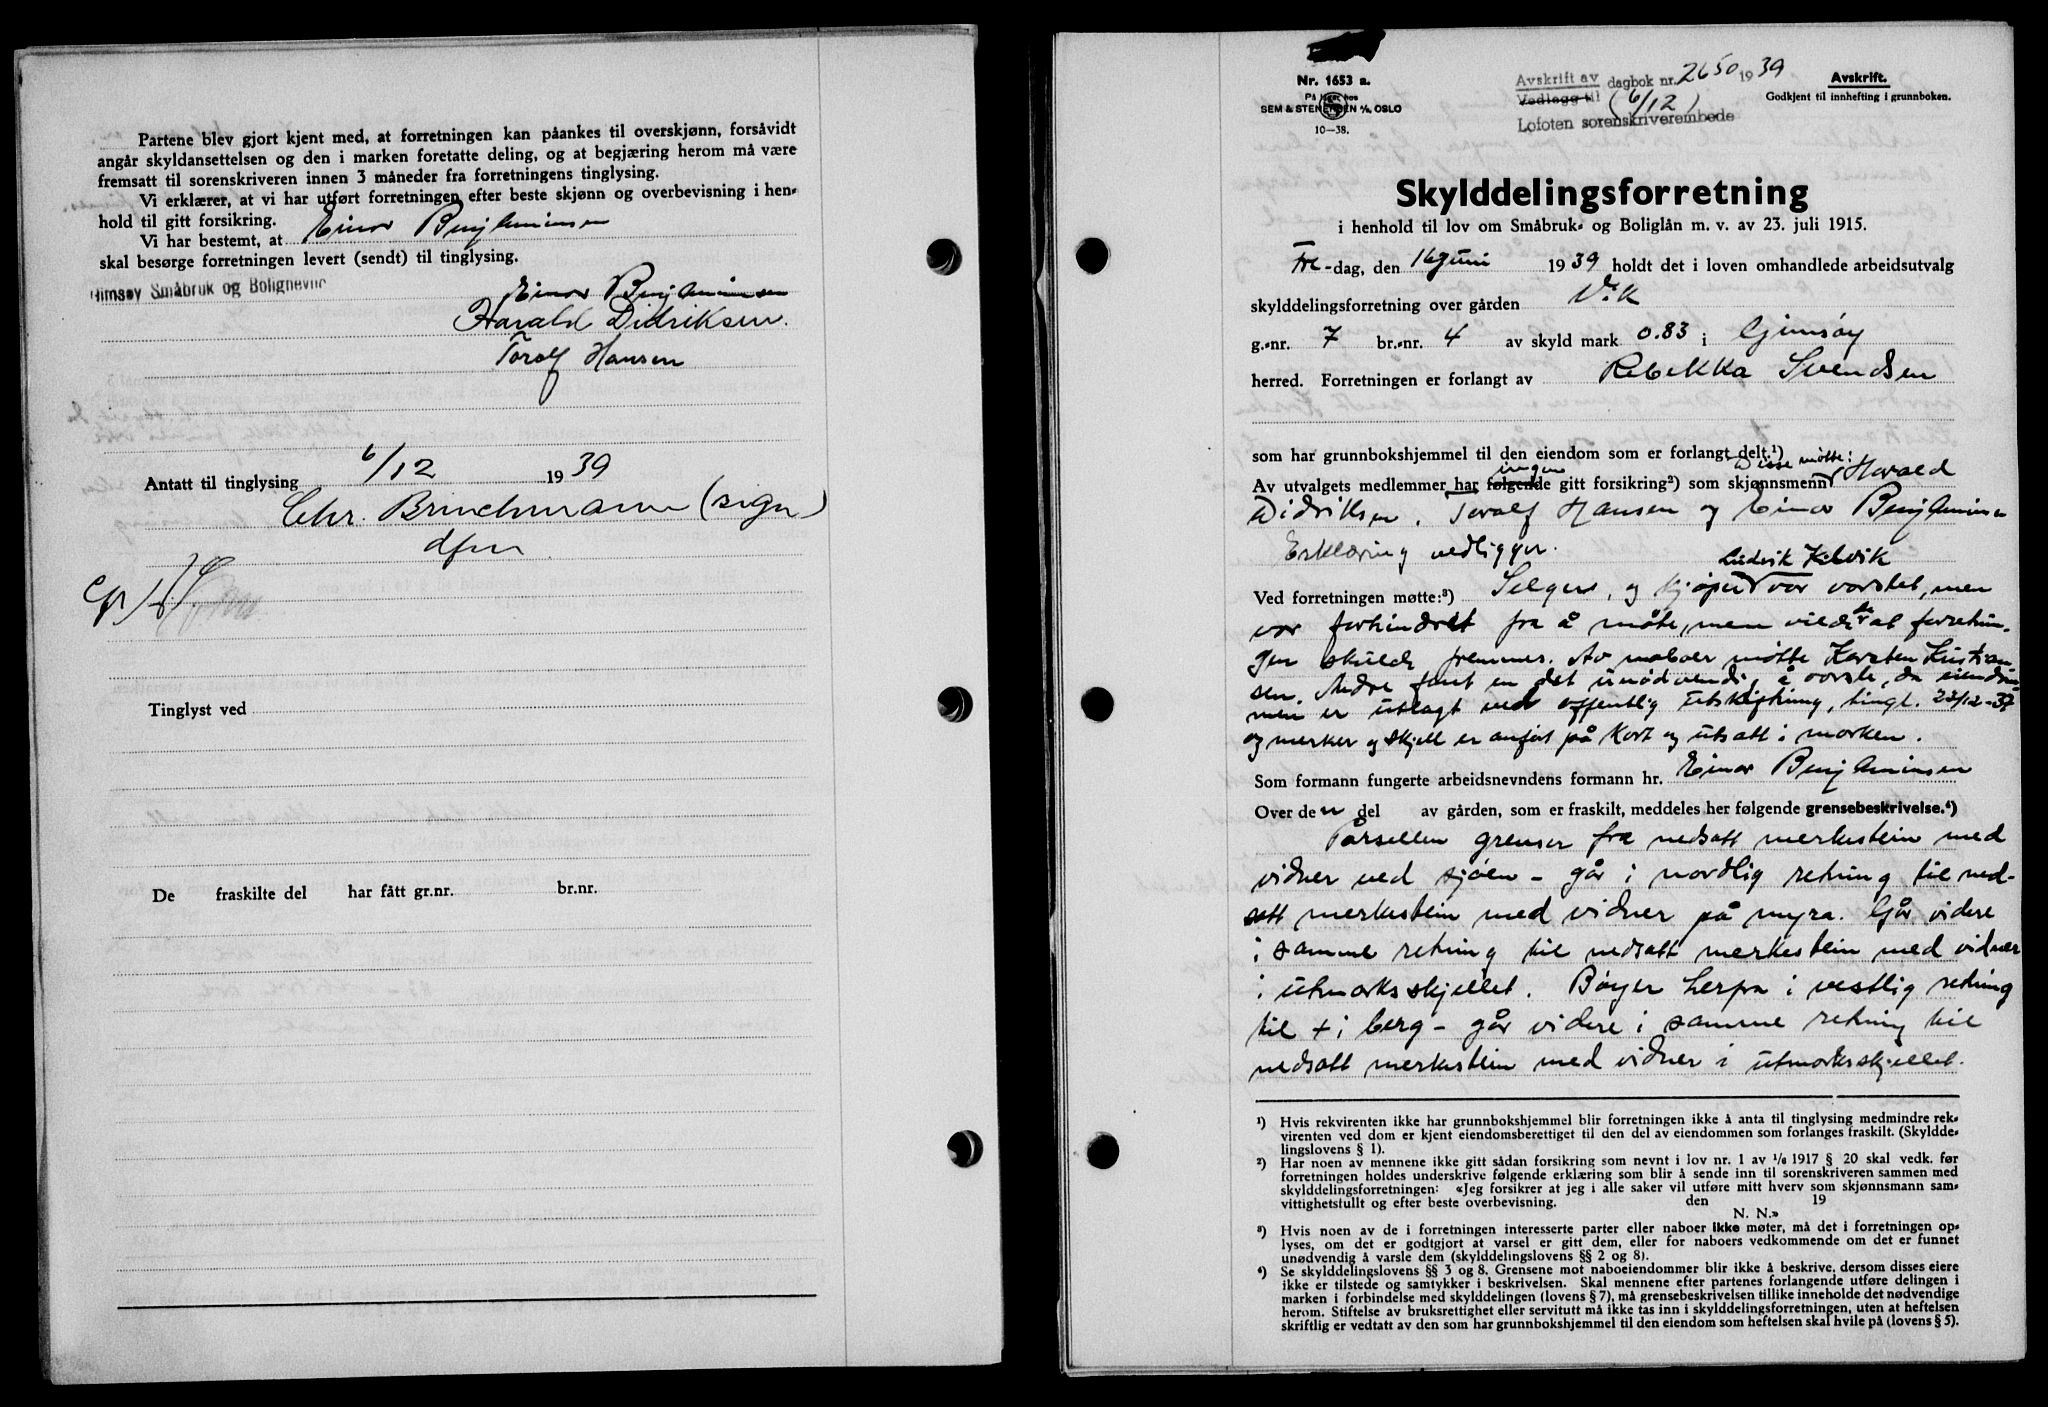 Partene blev gjort kjent med, at forretningen kan påankes til overskjønn, forsåvidt
angår skyldansettelsen og den i marken foretatte deling, og at begjæring herom må være
fremsatt til sorenskriveren innen 3 måneder fra forretningens tinglysing.
Vi erklærer, at vi har utført forretningen efter beste skjønn og overbevisning i hen-
hold til gitt forsikring.
Vi har bestemt, at Einar Benjaminsen
skal besørge forretningen levert (sendt) til tinglysing.
Gimsøy Småbruk og Bolignevnd
Einar Benjaminsen
Harald Didriksen.
Toralf Hansen
Antatt til tinglysing 6/12 1939
Chr. Brinchmann (sign)
dfm
Tinglyst ved
De fraskilte del har fått gr.nr. br.nr.
Nr. 1653 a.
På lager hos
SEM & STENERSEN A/S, OSLO
10—38.
Avskrift av dagbok nr. 2650 1939
Vedlegg til (6/12)
Lofoten sorenskriverembede
Avskrift.
Godkjent til innhefting i grunnboken.
Skylddelingsforretning
i henhold til lov om Småbruk- og Boliglån m. v. av 23. juli 1915.
Fre-dag, den 16 juni 1939 holdt det i loven omhandlede arbeidsutvalg
skylddelingsforretning over gården Vik
g.-nr. 7 br.-nr. 4 av skyld mark 0.83 i Gimsøy
herred. Forretningen er forlangt av Rebekka Svendsen
som har grunnbokshjemmel til den eiendom som er forlangt delt.¹)
Av utvalgets medlemmer har følgende ingen gitt forsikring²) som skjønnsmenn Disse møtte: Harald
Didriksen, Toralf Hansen og Einar Benjaminsen
Erklæring vedligger.
Ved forretningen møtte:³) Selger, og kjøper Ludvik Kilvik var varslet, men
var forhindret fra å møte, men vilde at forretnin-
gen skulde fremmes. Av naboer møtte Karsten Kristian-
sen. Andre fant en det unødvendig å varsle, da eiendom-
men er utlagt ved offentlig utskiftning, tingl. 22/12-37
og merker og skjell er anført på kart og utsatt i marken.
Som formann fungerte arbeidsnevndens formann hr. Einar Benjaminsen
Over den del av gården, som er fraskilt, meddeles her følgende grensebeskrivelse.⁴)
Parsellen grenser fra nedsatt merkestein med
vidner ved sjøen – går i nordlig retning til ned-
satt merkestein med vidner på myra. Går videre
i samme retning til nedsatt merkestein med vidner
i utmarksskjellet. Bøyer herfra i vestlig retning
til + i berg – går videre i samme retning til
nedsatt merkestein med vidner i utmarksskjellet.
¹) Hvis rekvirenten ikke har grunnbokshjemmel blir forretningen ikke å anta til tinglysing medmindre rek-
virenten ved dom er kjent eiendomsberettiget til den del av eiendommen som forlanges fraskilt. (Skyldde-
lingslovens § 1).
²) Har noen av mennene ikke gitt sådan forsikring som nevnt i lov nr. 1 av 1/6 1917 § 20 skal vedk. før
forretningen holdes underskrive følgende erklæring som blir å sende inn til sorenskriveren sammen med
skylddelingsforretningen: «Jeg forsikrer at jeg i alle saker vil utføre mitt hverv som skjønnsmann sam-
vittighetsfullt og efter beste overbevisning. den 19
N. N.»
³) Hvis noen av de i forretningen interesserte parter eller naboer ikke møter, må det i forretningen op-
lyses, om det er godtgjort at varsel er gitt dem, eller for naboers vedkommende om det er funnet
unødvendig å varsle dem (skylddelingslovens §§ 2 og 8).
⁴) Se skylddelingslovens §§ 3 og 8. Grensene mot naboeiendommer blir ikke å beskrive, dersom disses eiere
ikke er tilstede og samtykker i beskrivelsen. Skal mennene efter partenes forlangende utføre delingen i
marken i forbindelse med skylddelingen (lovens § 7), må grensebeskrivelsen tillike inneholde det nødvendige
herom. Stiftelse av bruksrettighet eller servitutt må ikke tas inn i skylddelingsforretningen, uten at heftelsen
skriftlig er vedtatt av den som har grunnbokshjemmel til den eiendom som heftelsen skal hvile på (lovens § 5).